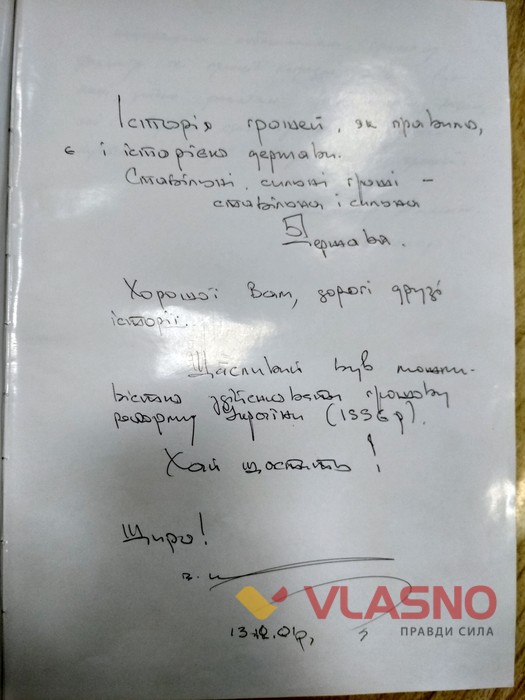 Історія грошей, як правило,
є і історією держави.
Стабільні, сильні гроші –
стабільна і сильна
Держава.
Хорошої Вам, дорогі друзі
історії.
Щасливий був можли-
вістю здійснювати грошову
реформу України (1996р).
Хай щастить!
Щиро!
VLASNO
ПРАВДИ СИЛА